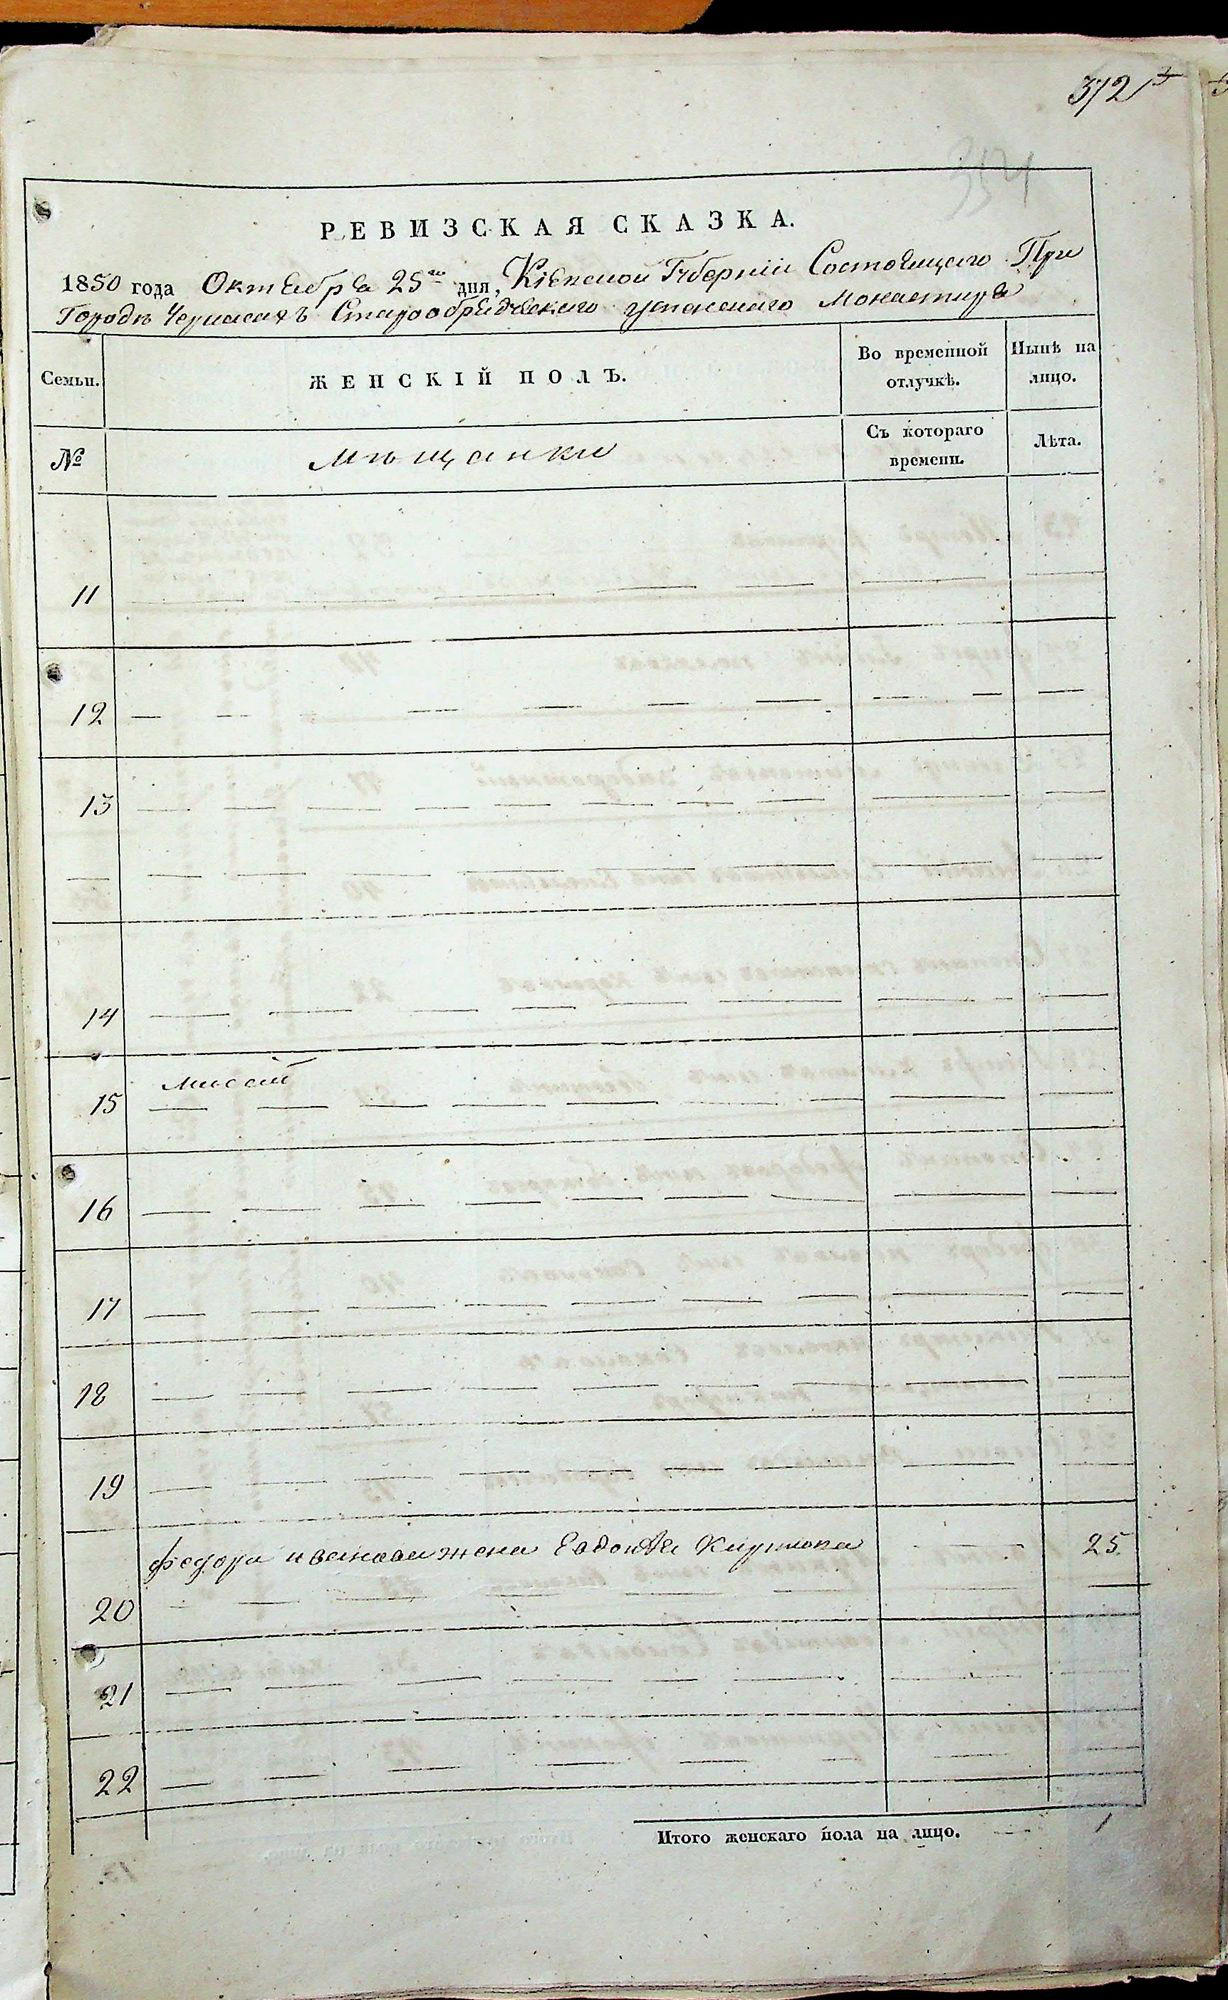 372
354
РЕВИЗСКАЯ СКАЗКА.
1850 года Октября 25го дня, Кіевской Губерніи Состоящаго При
Городѣ Черкасахъ Старообрядческаго успенскаго Монастыря
Семьи. ЖЕНСКІЙ ПОЛЪ. Во временной отлучкѣ. Нынѣ на лицо.
№ Мѣщанки Съ котораго времени. Лѣта.
11
12
13
14
15
16
17
18
19
Федора Иванова жена Евдокія 25
20
21
22
Итого женскаго пола на лицо. 1